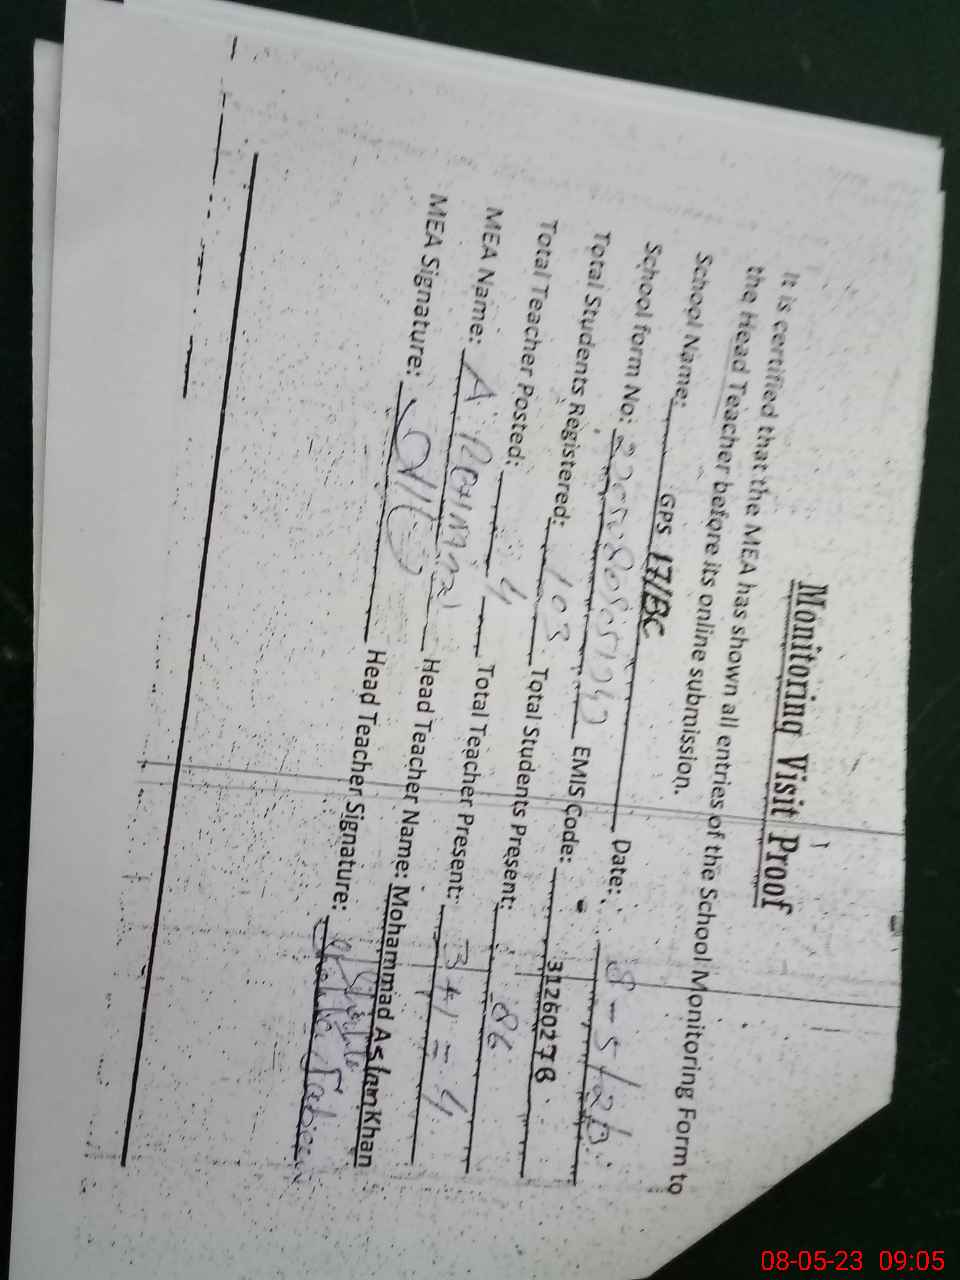 Monitoring Visit Proof
It is certified that the MEA has shown all entries of the School Monitoring Form to
the Head Teacher before its online submission.
School Name: GPS 17/BC Date: 8-5/23
School form No: EMIS Code: 31260278
Total Students Registered: 103 Total Students Present: 86
Total Teacher Posted: 4 Total Teacher Present: 3+1=4
MEA Name: A Rehman Head Teacher Name: Mohammad Aslam Khan
MEA Signature: Head Teacher Signature:
08-05-23 09:05